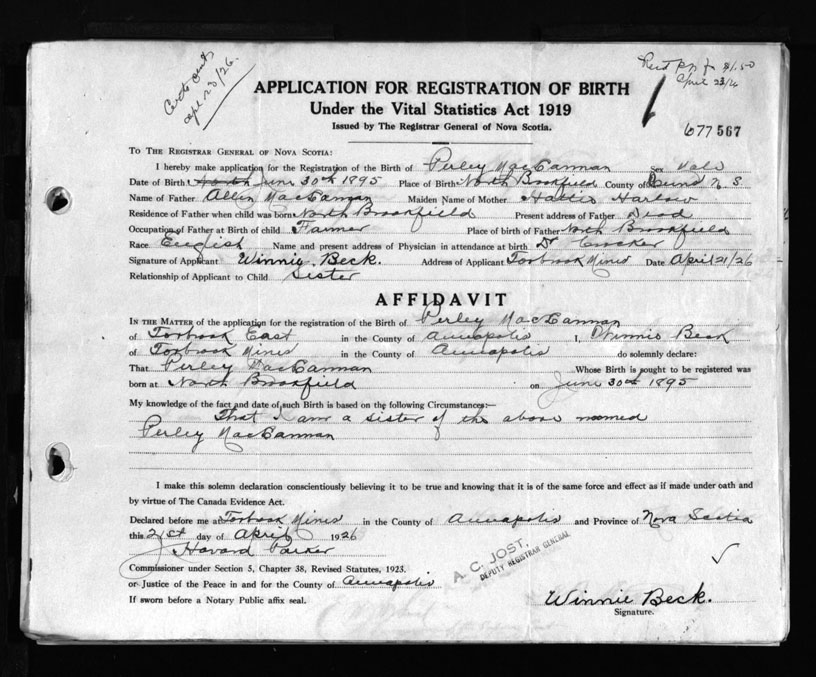 Certs out
apl 23/26.
Recd pp for $1.50
April 23/26
APPLICATION FOR REGISTRATION OF BIRTH
Under the Vital Statistics Act 1919
Issued by The Registrar General of Nova Scotia.
677567
TO THE REGISTRAR GENERAL OF NOVA SCOTIA:
I hereby make application for the Registration of the Birth of Perley MacCannan Male
Date of Birth June 30th 1895 Place of Birth North Brookfield County of Queens N. S
Name of Father Allen MacCannan Maiden Name of Mother Hattie Harlow
Residence of Father when child was born North Brookfield Present address of Father Dead
Occupation of Father at Birth of child Farmer Place of birth of Father North Brookfield
Race English Name and present address of Physician in attendance at birth Dr Crocker
Signature of Applicant Winnie Beck. Address of Applicant Torbrook Mines Date April 21/26
Relationship of Applicant to Child Sister
AFFIDAVIT
IN THE MATTER of the application for the registration of the Birth of Perley MacCannan
of Torbrook East in the County of Annapolis I, Winnie Beck
of Torbrook Mines in the County of Annapolis do solemnly declare:
That Perley MacCannan Whose Birth is sought to be registered was
born at North Brookfield on June 30th 1895
My knowledge of the fact and date of such Birth is based on the following Circumstances:—
That I am a sister of the above named
Perley MacCannan
I make this solemn declaration conscientiously believing it to be true and knowing that it is of the same force and effect as if made under oath and
by virtue of The Canada Evidence Act.
Declared before me at Torbrook Mines in the County of Annapolis and Province of Nova Scotia
this 21st day of April 1926
Havard Parker
Commissioner under Section 5, Chapter 38, Revised Statutes, 1923.
or Justice of the Peace in and for the County of Annapolis
If sworn before a Notary Public affix seal.
A. C. JOST,
DEPUTY REGISTRAR GENERAL
Winnie Beck.
Signature.